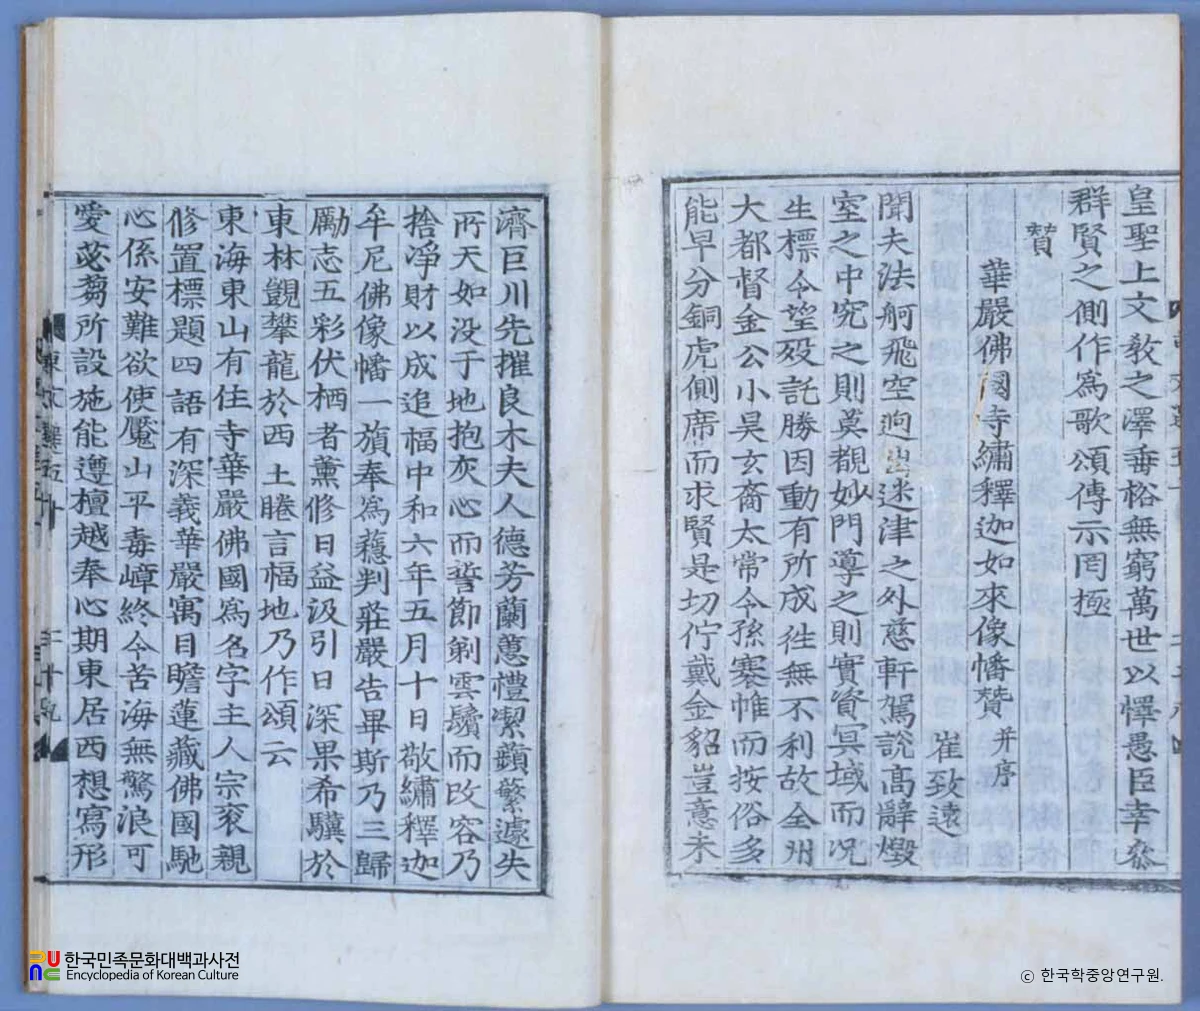 皇聖上文敎之澤垂裕無窮萬世以懌愚臣幸叅
群賢之側作爲歌頌傳示罔極
贊
華嚴佛國寺繡釋迦如來像幡贊 并序
崔致遠
聞夫法舸飛空逈出迷津之外慈軒駕說高辭燬
室之中究之則莫覩妙門導之則實資冥域而况
生標令望歿託勝因動有所成徃無不利故全州
大都督金公小昊玄裔太常令孫褰帷而按俗多
能早分銅虎側席而求賢是切佇戴金貂豈意未
濟巨川先摧良木夫人德芳蘭蕙禮潔蘋蘩遽失
所天如没于地抱灰心而誓節剃雲鬢而改容乃
捨淨財以成追福中和六年五月十日敬繡釋迦
牟尼佛像幡一㫋奉爲蘓判莊嚴告畢斯乃三歸
勵志五彩伏栖者薰修日益汲引日深果希驥於
東林覬攀龍於西土睠言福地乃作頌云
東海東山有住寺華嚴佛國爲名字主人宗衮親
修置標題四語有深義華嚴寓目瞻蓮藏佛國馳
心係安難欲使魘山平毒嶂終令苦海無驚浪可
愛苾蒭所設施能遵檀越奉心期東居西想寫形
한국민족문화대백과사전
Encyclopedia of Korean Culture
ⓒ 한국학중앙연구원.